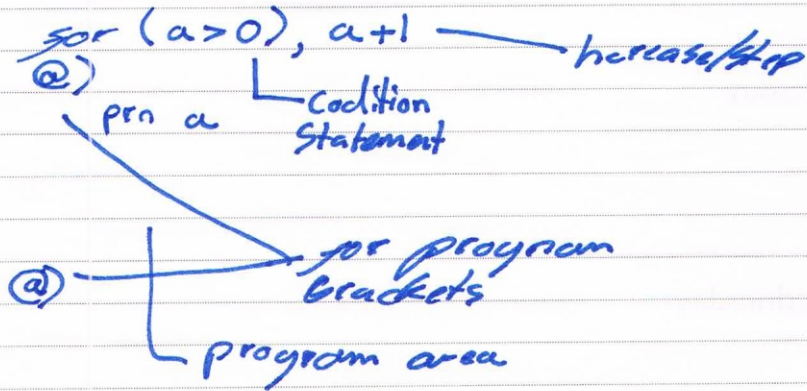 for (a>0), a+1
Increase/step
@)
prn a
Codition
Statement
for program
brackets
@)
program area